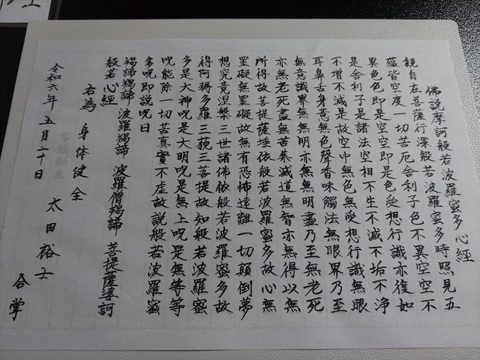 佛説摩訶般若波羅蜜多心經
観自在菩薩行深般若波羅蜜多時照見五
蘊皆空度一切苦厄舎利子色不異空空不
異色色即是空空即是色受想行識亦復如
是舎利子是諸法空相不生不滅不垢不浄
不増不減是故空中無色無受想行識無眼
耳鼻舌身意無色聲香味觸法無眼界乃至
無意識界無無明亦無無明盡乃至無老死
亦無老死盡無苦集滅道無智亦無得以無
所得故菩提薩埵依般若波羅蜜多故心無
罣礙無罣礙故無有恐怖遠離一切顛倒夢
想究竟涅槃三世諸佛依般若波羅蜜多故
得阿耨多羅三藐三菩提故知般若波羅蜜
多是大神呪是大明呪是無上呪是無等等
呪能除一切苦真實不虚故説般若波羅蜜
多呪即説呪曰
羯諦羯諦 波羅羯諦 波羅僧羯諦 菩提薩婆訶
般若心經
右為 身体健全
令和六年五月二十日 太田裕士 合掌